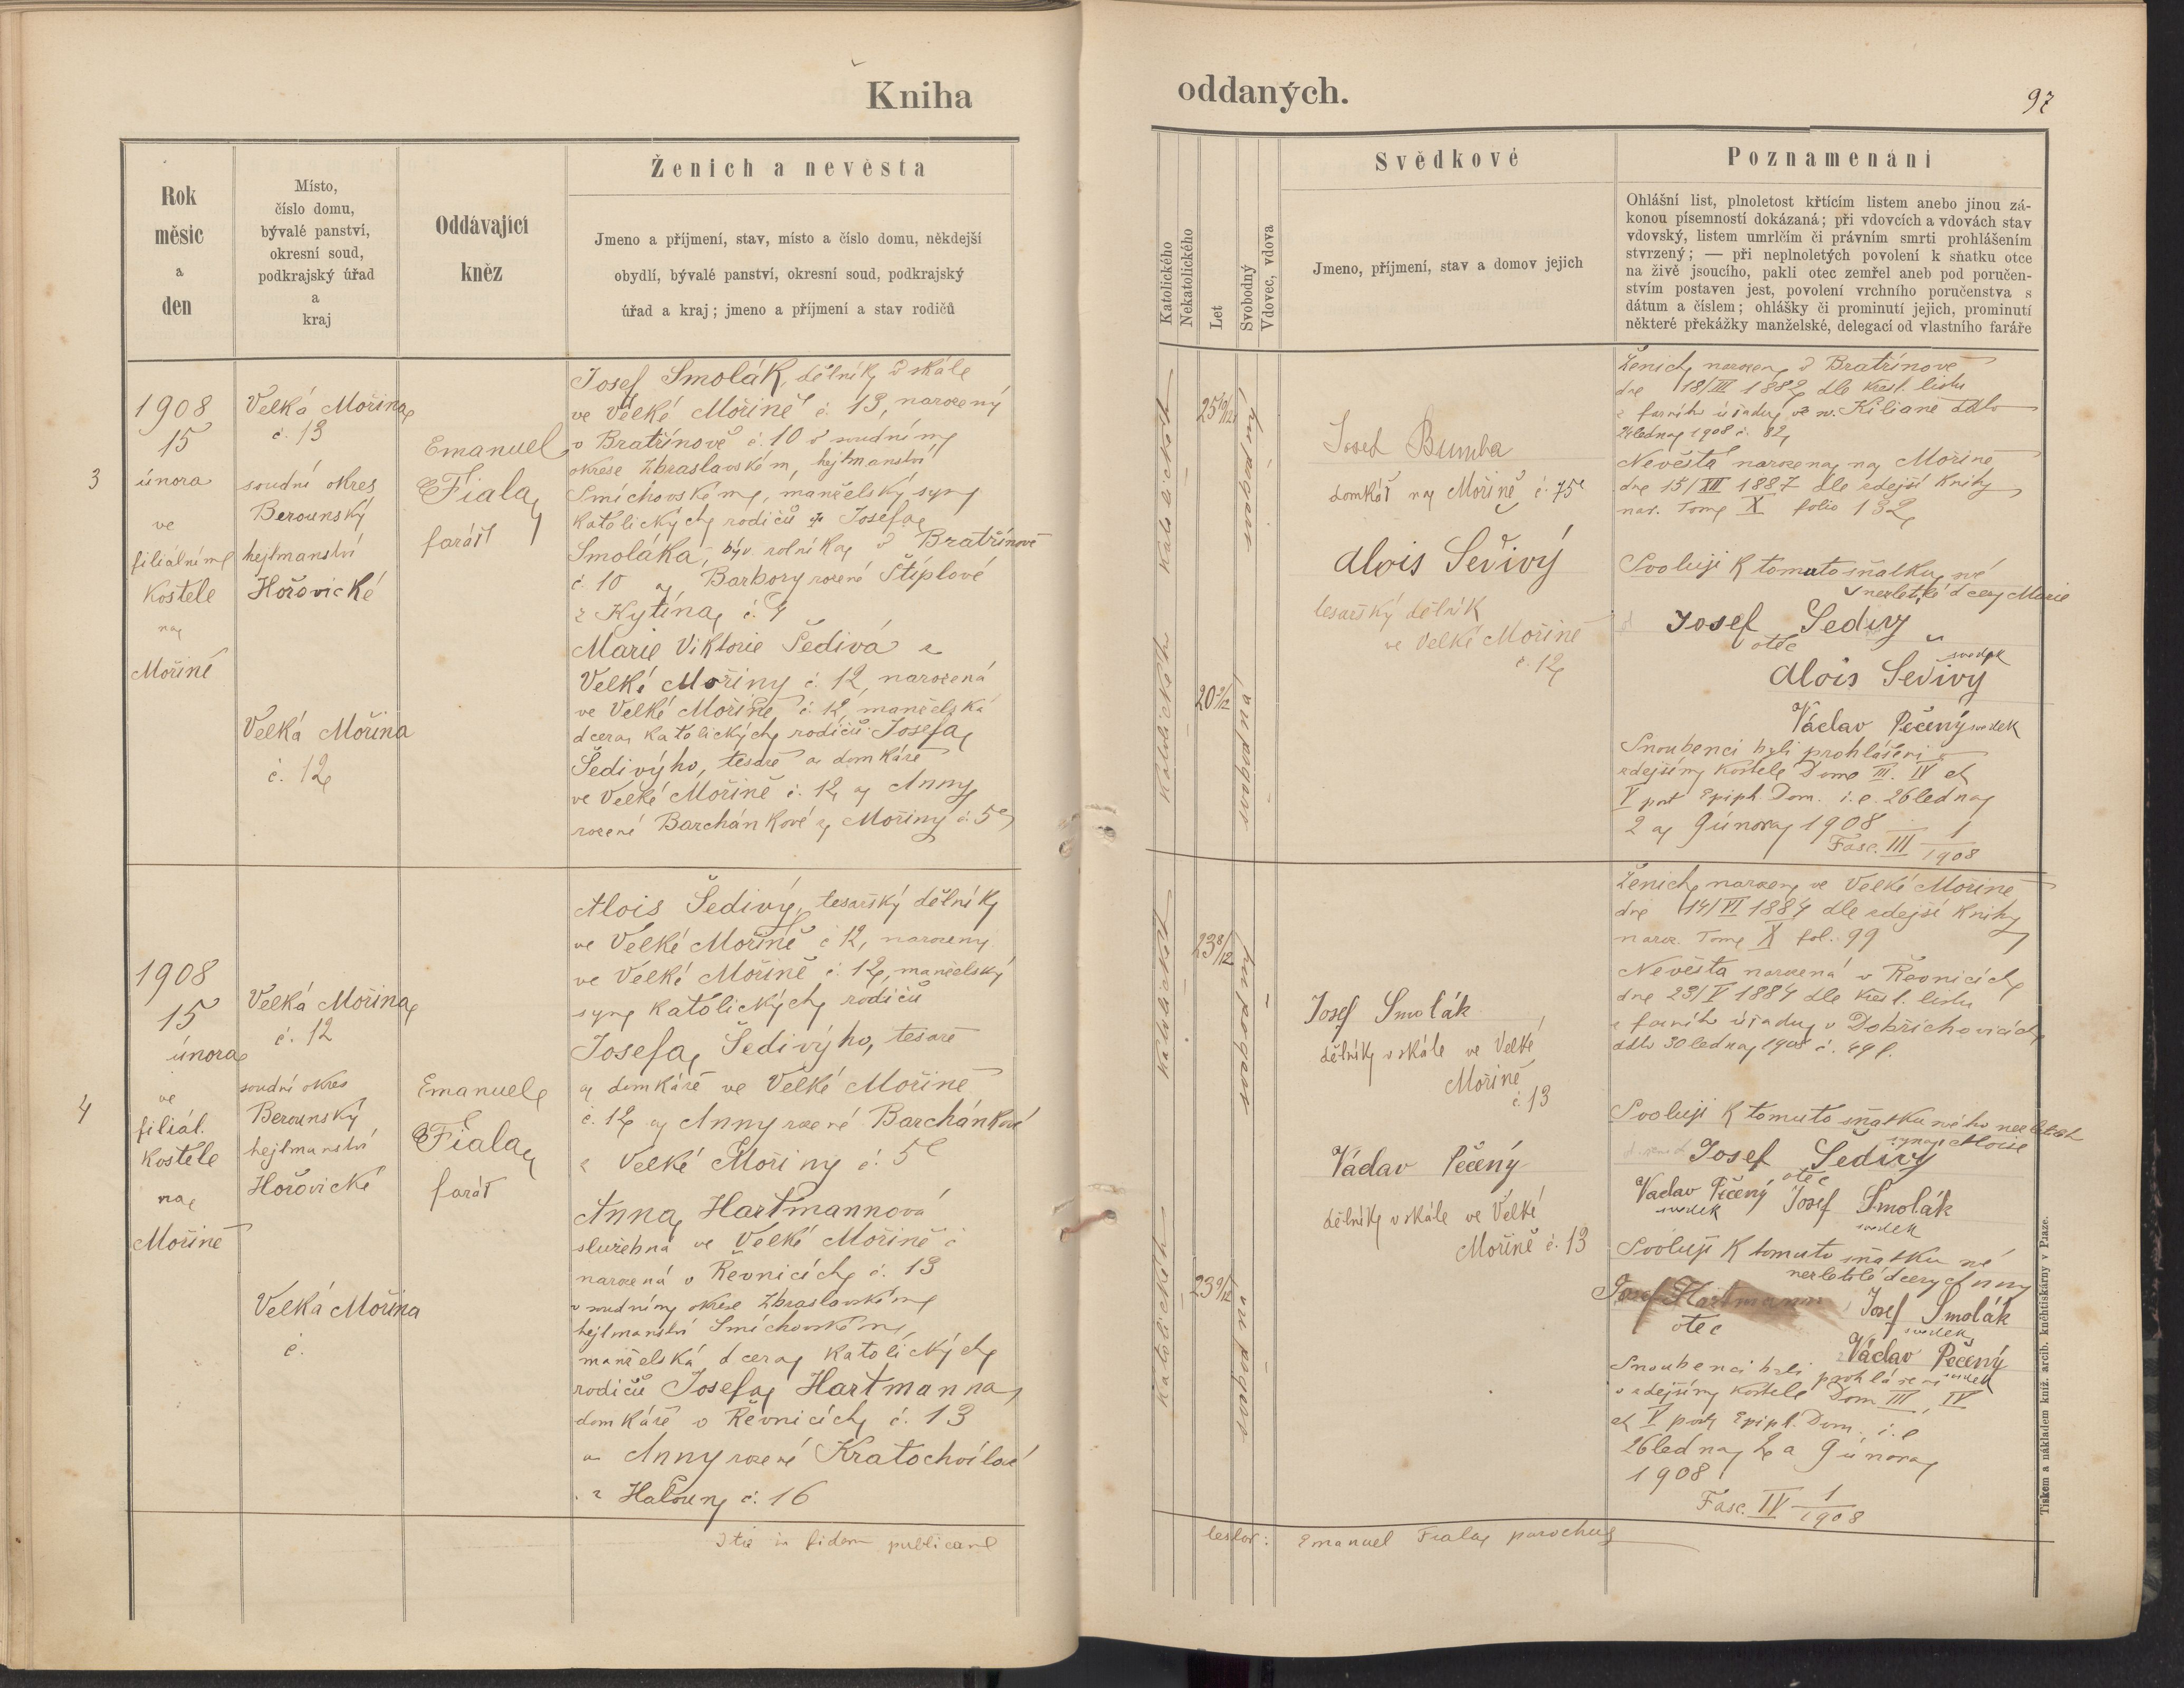 Kniha
oddaných.
97
Rok
měsíc
a
den
Místo,
číslo domu,
bývalé panství,
okresní soud,
podkrajský úřad
a
kraj
Oddávající
kněz
Ženich a nevěsta
Jmeno a příjmení, stav, místo a číslo domu, někdejší
obydlí, bývalé panství, okresní soud, podkrajský
úřad a kraj; jmeno a příjmení a stav rodičů
Katolického
Nekatolického
Let
Svobodný
Vdovec, vdova
Svědkové
Jmeno, příjmení, stav a domov jejich
Poznamenání
Ohlášní list, plnoletost křtícím listem anebo jinou zá-
konou písemností dokázaná; při vdovcích a vdovách stav
vdovský, listem umrlčím či právním smrti prohlášením
stvrzený; — při neplnoletých povolení k sňatku otce
na živě jsoucího, pakli otec zemřel aneb pod poručen-
stvím postaven jest, povolení vrchního poručenstva s
dátum a číslem; ohlášky či prominutí jejich, prominutí
některé překážky manželské, delegací od vlastního faráře
3
1908
15
února
ve
filiálním
kostele
na
Mořině
Velká Mořina
č. 13
soudní okres
Berounský
hejtmanství
Hořovické
Velká Mořina
č. 12
Emanuel
Fiala
farář
Josef Smolák, dělník v skále
ve Velké Mořině č. 13, narozený
v Bratřínově č. 10 v soudním
okrese Zbraslavském, hejtmanství
Smíchovském, manželský syn
katolických rodičů Josefa
Smoláka, býv. rolníka v Bratřínově
č. 10 a Barbory rozené Štiplové
z Kytína č. 9
Marie Viktorie Šedivá z
Velké Mořiny č. 12, narozená
ve Velké Mořině č. 12, manželská
dcera katolických rodičů Josefa
Šedivýho, tesaře a domkáře
ve Velké Mořině č. 12 a Anny
rozené Barchánkové z Mořiny č. 5
katolické
25 10/12
svobodný
katolického
20 2/12
svobodná
Josef Bumba
domkář na Mořině č. 75
Alois Šedivý
tesařský dělník
ve Velké Mořině
č. 12
Ženich narozen v Bratřínově
dne 18/III 1882 dle křest. listu
z farního úřadu u sv. Kiliané ddto
ledna 1908 č. 82
Nevěsta narozena na Mořině
dne 15/XII 1887 dle zdejší knihy
nar. Tom X folio 132
Svoluji k tomuto sňatku své
nezletilé dcery Marie
Josef Šedivý
otec
Alois Šedivý
svedek
Václav Pečený svedek
Snoubenci byli prohlášeni v
zdejším kostele Dom. III. IV et
V post Epiph. Dom. i. e. 26 ledna
2 a 9 února 1908
Fasc. III 1/1908
4
1908
15
února
ve
filiál.
kostele
na
Mořině
Velká Mořina
č. 12
soudní okres
Berounský
hejtmanství
Hořovické
Velká Mořina
č.
Emanuel
Fiala
farář
Alois Šedivý, tesařský dělník
ve Velké Mořině č 12, narozený
ve Velké Mořině č. 12, manželský
syn katolických rodičů
Josefa Šedivýho, tesaře
a domkáře ve Velké Mořině
č. 12 a Anny rozené Barchánkové
z Velké Mořiny č. 5
Anna Hartmannová
služebná ve Velké Mořině č
narozená v Řevnicích č. 13
v soudním okrese Zbraslavském
hejtmanství Smíchovském,
manželská dcera katolických
rodičů Josefa Hartmanna,
domkáře v Řevnicích č. 13
a Anny rozené Kratochvílové
z Haloun č. 16
katolické
23 8/12
svobodný
katolické
23 9/12
svobodná
Josef Smolák
dělník v skále ve Velké
Mořině
č. 13
Václav Pečený
dělník v skále ve Velké
Mořině č. 13
Ženich narozen ve Velké Mořině
dne 14/VI 1884 dle zdejší knihy
naroz. Tom X fol. 99
Nevěsta narozená v Řevnicích
dne 23/V 1884 dle křest. listu
z farního úřadu v Dobřichovicích
ddto 30 ledna 1908 č. 49
Svoluji k tomuto sňatku mého nezletilého
syna Aloise
Josef Šedivý
otec
Vaclav Pečený Josef Smolák
svedek svedek
Svoluji k tomuto sňatku mé
nezletilé dcery Anny
Josef Hartmann Josef Smolák
otec svedek
Václav Pečený
svedek
Snoubenci byli prohlášeni
v zdejším kostele Dom III, IV
et V post Epiph. Dom. i. e
26 ledna, 2 a 9 února
1908
Fasc. IV 1/1908
Ita in fidem publicam
testor: Emanuel Fiala parochus
Tiskem a nákladem kníž. arcib. knihtiskárny v Praze.